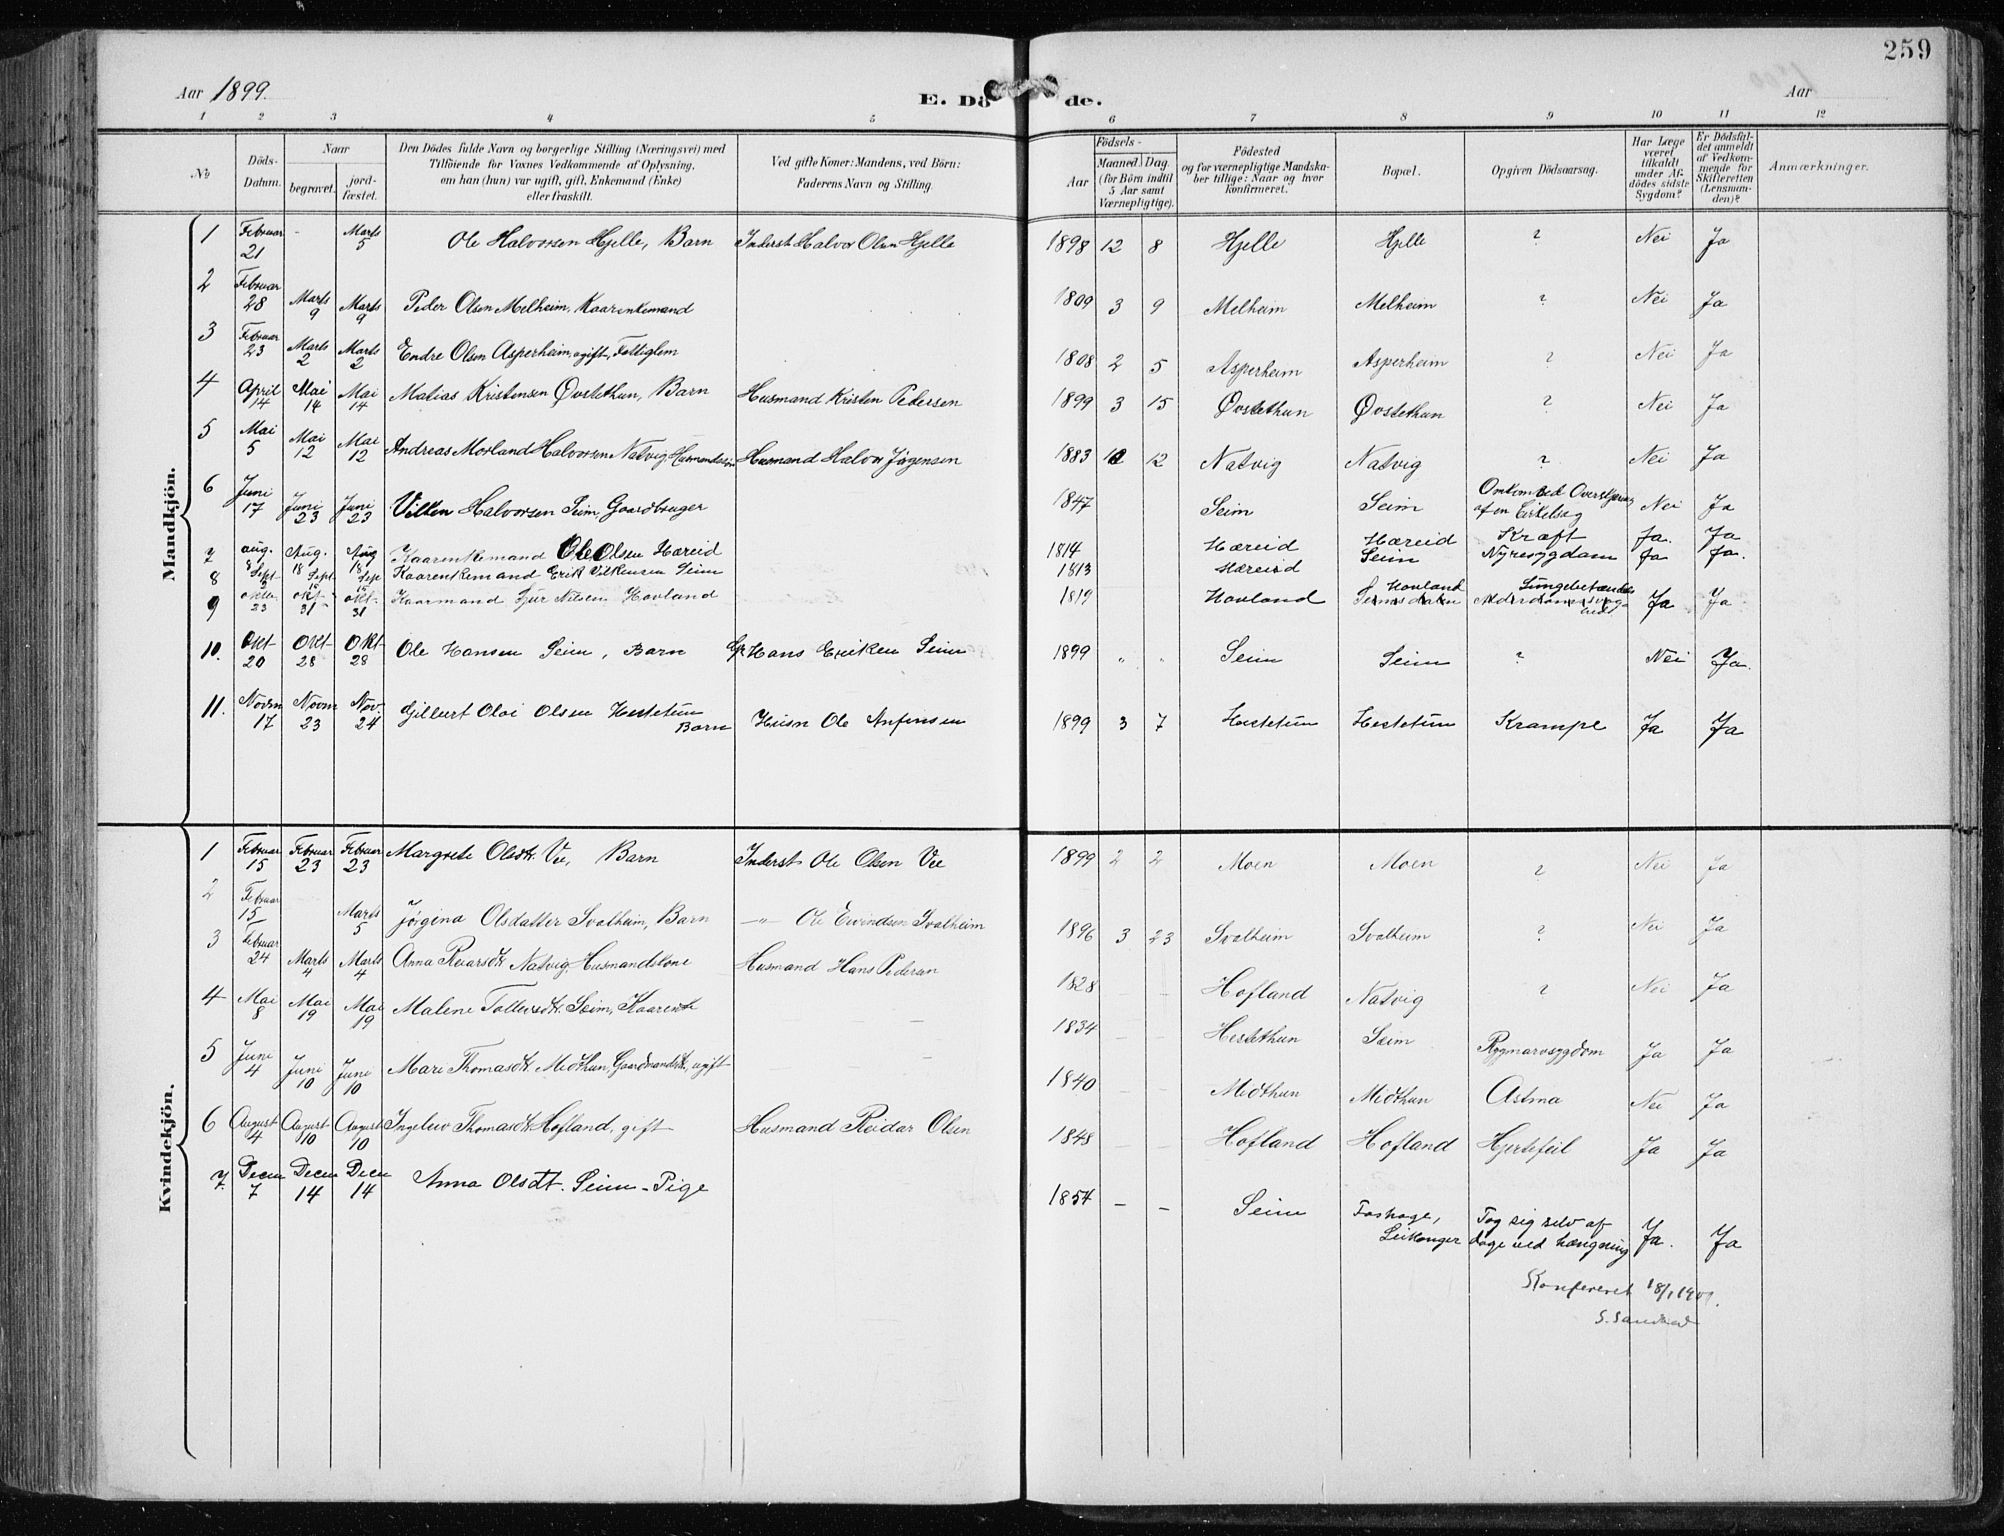 259
Aar 1899.
E. Dö de.
Aar
1 2 3 4 5 6 7 8 9 10 11 12
No
Döds-Datum.
Naar
begravet.
jord-fæstet.
Den Dödes fulde Navn og borgerlige Stilling (Næringsvei) med
Tilföiende for Voxnes Vedkommende af Oplysning,
om han (hun) var ugift, gift, Enkemand (Enke)
eller fraskilt.
Ved gifte Koner: Mandens, ved Börn:
Faderens Navn og Stilling.
Födsels-
Aar
Maaned. Dag.
(for Börn indtil
5 Aar samt
Værnepligtige).
Födested
og for værnepligtige Mandska-
ber tillige: Naar og hvor
konfirmeret.
Bopæl.
Opgiven Dödsaarsag.
Har Læge
været
tilkaldt
under Af-
dödes sidste
Sygdom?
Er Dödsfal-
det anmeldt
af Vedkom-
mende for
Skifteretten
(Lensman-
den)?
Anmærkninger.
Mandkjön.
1 Februar 21 - Marts 5 Ole Halvorsen Hjelle, Barn Inderst Halvor Olsen Hjelle 1898 12 8 Hjelle Hjelle ? Nei Ja
2 Februar 28 Marts 9 Marts 9 Peder Olsen Melheim, Kaarenkemand 1809 3 9 Melheim Melheim ? Nei Ja
3 Februar 23 Marts 2 Marts 2 Endre Olsen Asperheim, ugift, Fattiglem 1808 2 5 Asperheim Asperheim ? Nei Ja
4 April 14 Mai 14 Mai 14 Matias Kristensen Øvstethun, Barn Husmand Kristen Pedersen 1899 3 15 Øvstethun Øvstethun ? Nei Ja
5 Mai 5 Mai 12 Mai 12 Andreas Morland Halvorsen Natvig, Husmandssøn Husmand Halvor Jørgensen 1883 12 Natvig Natvig ? Nei Ja
6 Juni 17 Juni 23 Juni 23 Villen Halvorsen Seim, Gaardbruger 1847 Seim Seim Omkom ved Overskjæring af en Cirkelsag Nei Ja
7 Aug. 8 Aug. 18 Aug 18 Kaarenkemand Ole Olsen Hæreid 1814 Hæreid Hæreid Kræft Ja. Ja
8 Sept 5 Sept 15 Sep 15 Kaarenkemand Erik Vilkensen Seim 1813 Hæreid Seim Nyresygdom Ja Ja.
9 Oktb 23 Okt- 31- Okt- 31 Kaarmand Sjur Nilsen Hovland 1819 Hovland Hovland Lungebetændelse Ja Ja
10. Okt- 20 Okt- 28 Okt- 28 Ole Hansen Seim, Barn Hans Eriksen Seim 1899 " " Seim Seim ? Nei Ja.
11. Novm 17 Novm 23 Nov. 24 Gilbert Olai Olsen Hestetun Barn Husm Ole Anfinsen 1899 3 7 Hestetun Hestetun Krampe Ja Ja
Kvindekjön.
1 Februar 15 Februar 23 Februar 23 Margrete Olsdtr. Vee, Barn Inderst Ole Olsen Vee 1899 2 2 Moen Moen ? Nei Ja
2 Februar 15 Marts 5 Jørgina Olsdatter Svalheim, Barn —"— Ole Eivindsen Svalheim 1896 3 23 Svalheim Svalheim ? Nei Ja
3 Februar 24 Marts 4 Marts 4 Anna Reiarsdtr. Natvig, Husmandskone Husmand Hans Pedersen 1828 – – Hofland Natvig ? Nei Ja
4 Mai 8 Mai 19 Mai 19 Malene Tollersdtr. Seim, Kaarenke 1834 – – Hestethun Seim Rygmarvsygdom Ja Ja
5 Juni 4 Juni 10 Juni 10 Mari Thomasdtr. Midthun, Gaardmandsdtr., ugift 1840 – – Midthun Midthun Astma Nei Ja
6 August 4 August 10 August 10 Ingeleiv Thomasdtr. Hofland, gift Husmand Reidar Olsen 1848 – – Hofland Hofland Hjertefeil Ja Ja
7. Decem 7 Decem 14 Decem 14 Anna Olsdt. Seim - Pige 1854 – – Seim Foshage, Leikanger Tog sig selv af dage ved hængning Ja. Ja
Konfereret 18/1 1900.